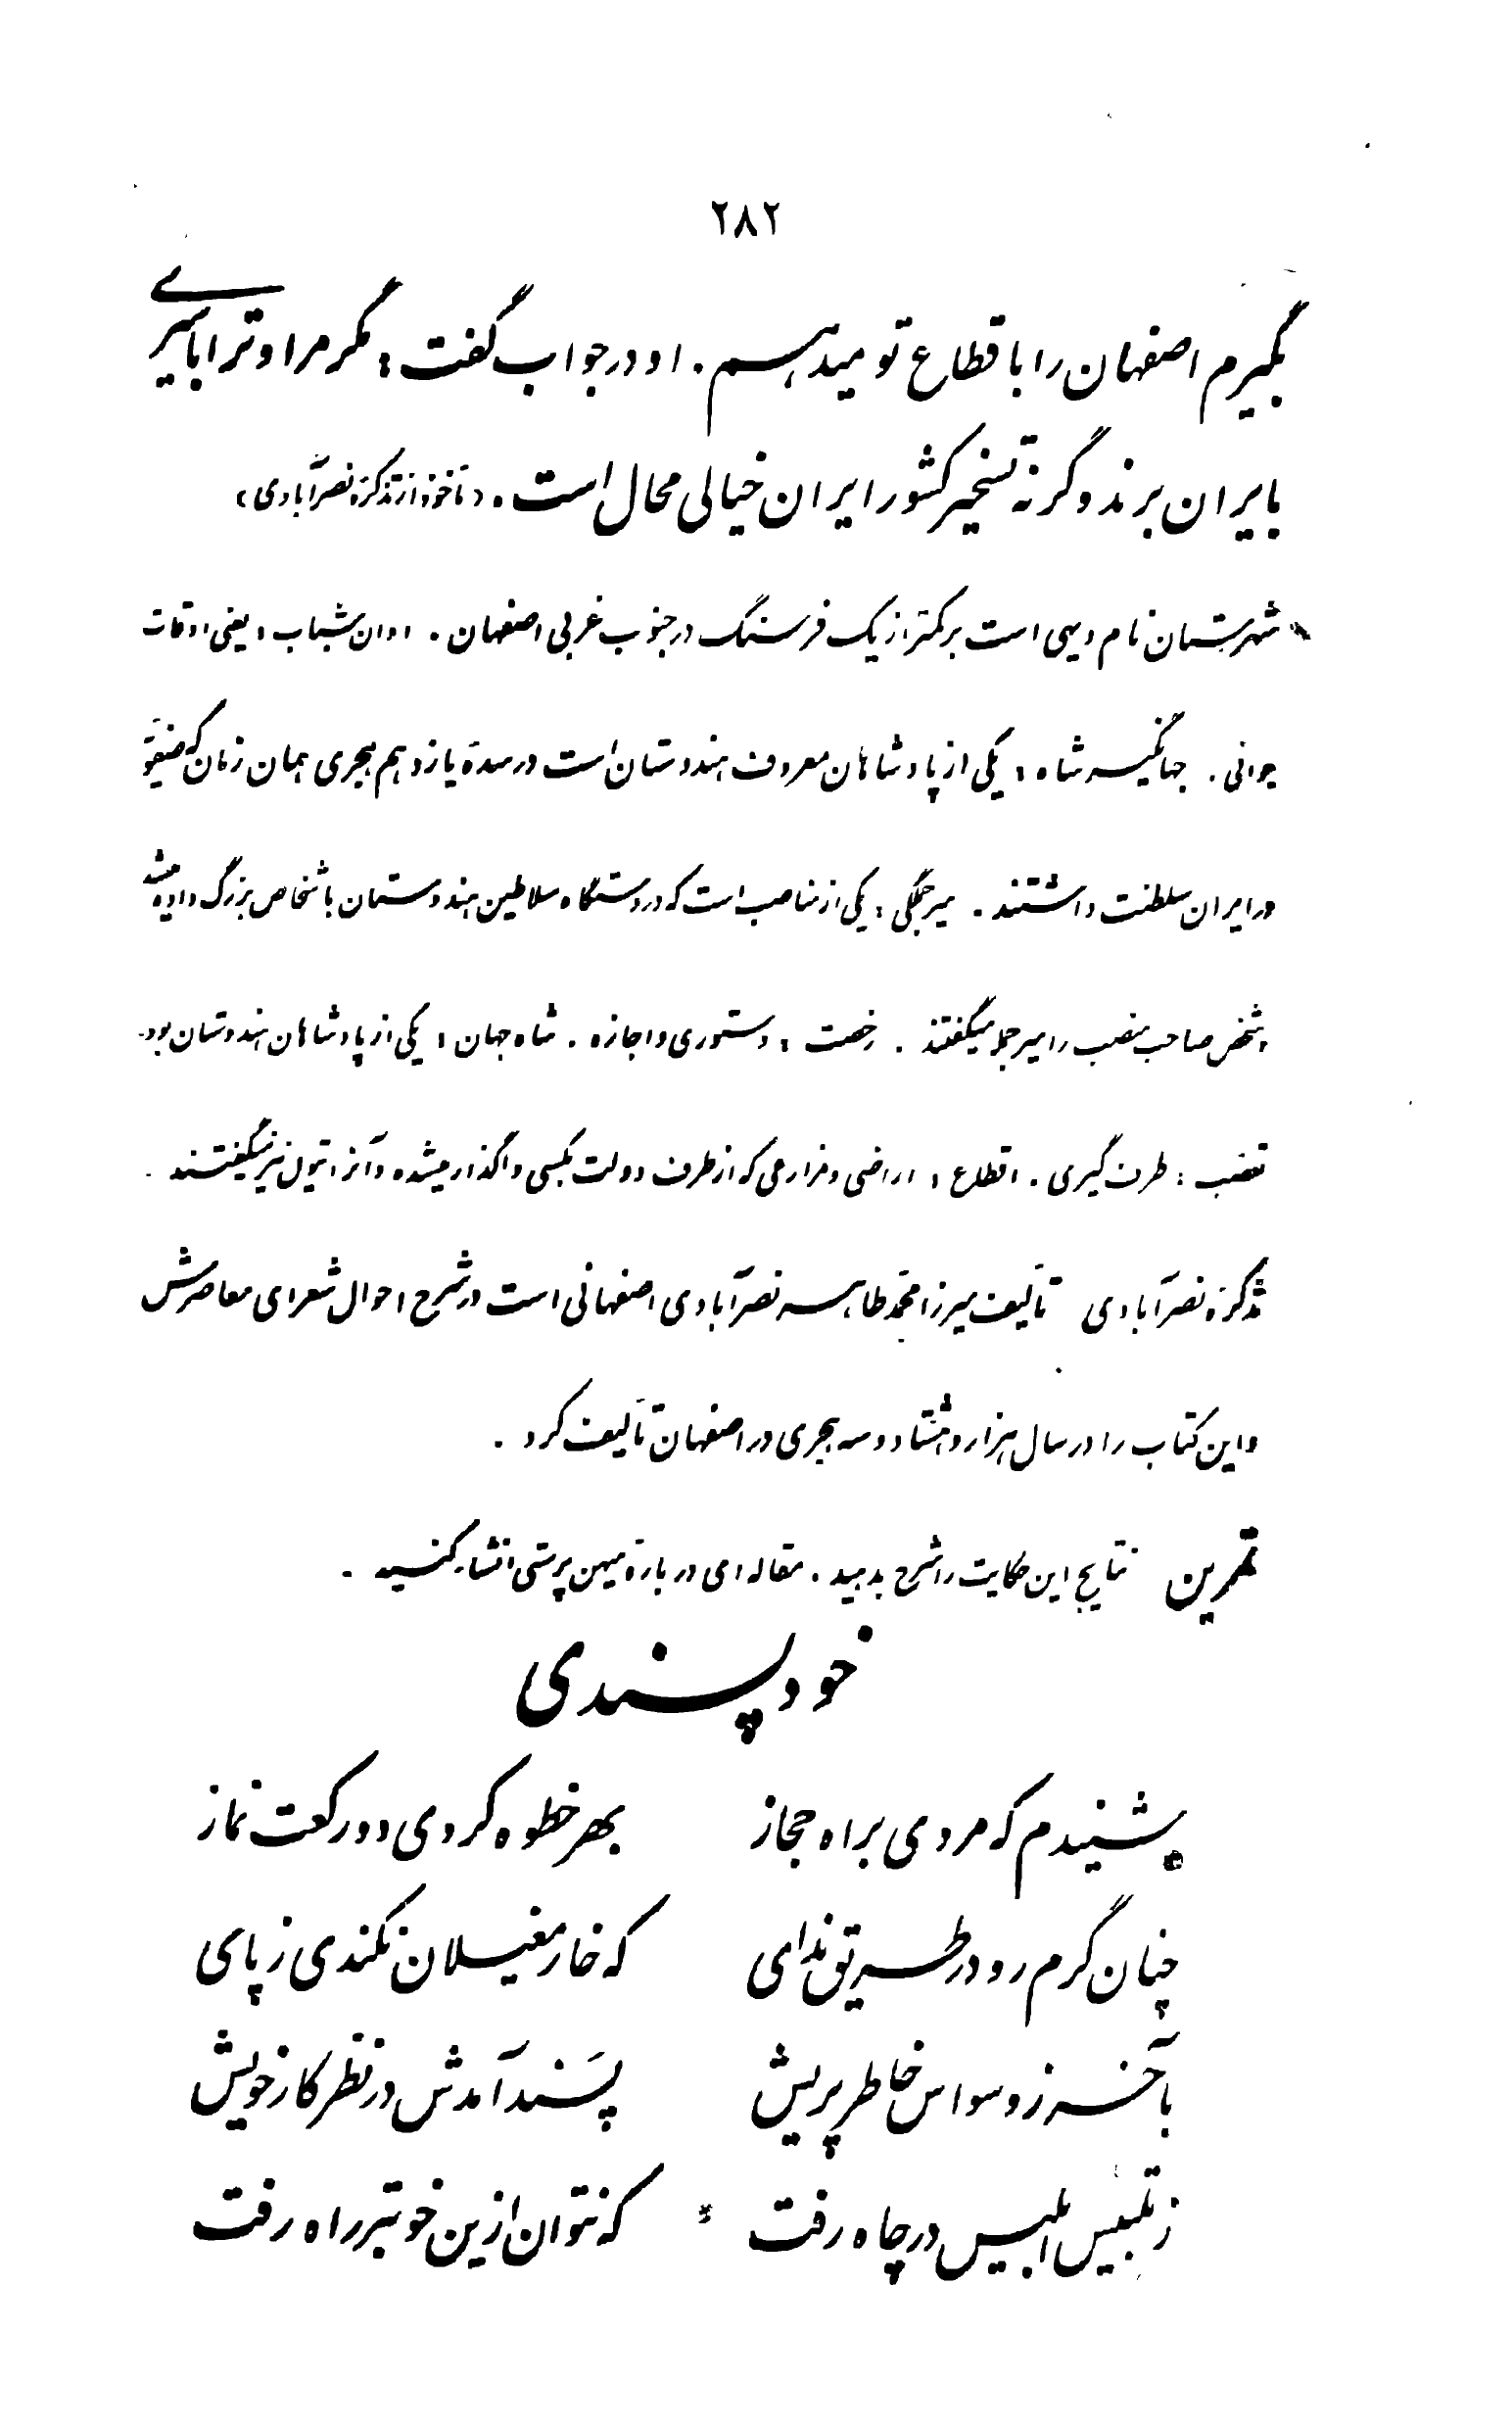 ۲۸۲
بگیرم اصفهان را باقطاع تو میدهم . او در جواب گفت : مگر مرا و ترا باسیری
بایران برند وگرنه تسخیر کشور ایران خیالی محال است . (مأخوذ از تذکرهٔ نصرآبادی)
شهرستان نام دیهی است بر کمتر از یک فرسنگ در جنوب غربی اصفهان . اوان شباب : یعنی اوقات
جوانی . جهانگیر شاه : یکی از پادشاهان معروف هندوستان است در سدهٔ یازدهم هجری همان زمان که صفویّه
در ایران سلطنت داشتند . میر جملگی : یکی از مناصب است که در دستگاه سلاطین هندوستان باشخاص بزرگ داده میشد
و شخص صاحب منصب را میر جمله میگفتند . رخصت : دستوری و اجازه . شاه جهان : یکی از پادشاهان هندوستان بود
تعصب : طرف گیری . اقطاع : اراضی و مزارعی که از طرف دولت بکسی واگذار میشده و آنرا تیول نیز میگفتند .
تذکرهٔ نصرآبادی تألیف میرزا محمّد طاهر نصرآبادی اصفهانی است در شرح احوال شعرای معاصرش
و این کتاب را در سال هزار و هشتاد و سه هجری در اصفهان تألیف کرد .
تمرین نتایج این حکایت را شرح بدهید . مقاله ای در بارهٔ میهن پرستی انشاء کنید .
خود پسندی
شنیدم که مردی براه حجاز بهر خطوه کردی دو رکعت نماز
چنان گرم رو در طریق خدای که خار مغیلان نکندی ز پای
بآخر ز وسواس خاطر پریش پسند آمدش در نظر کار خویش
ز تلبیس ابلیس در چاه رفت که نتوان ازین خوبتر راه رفت